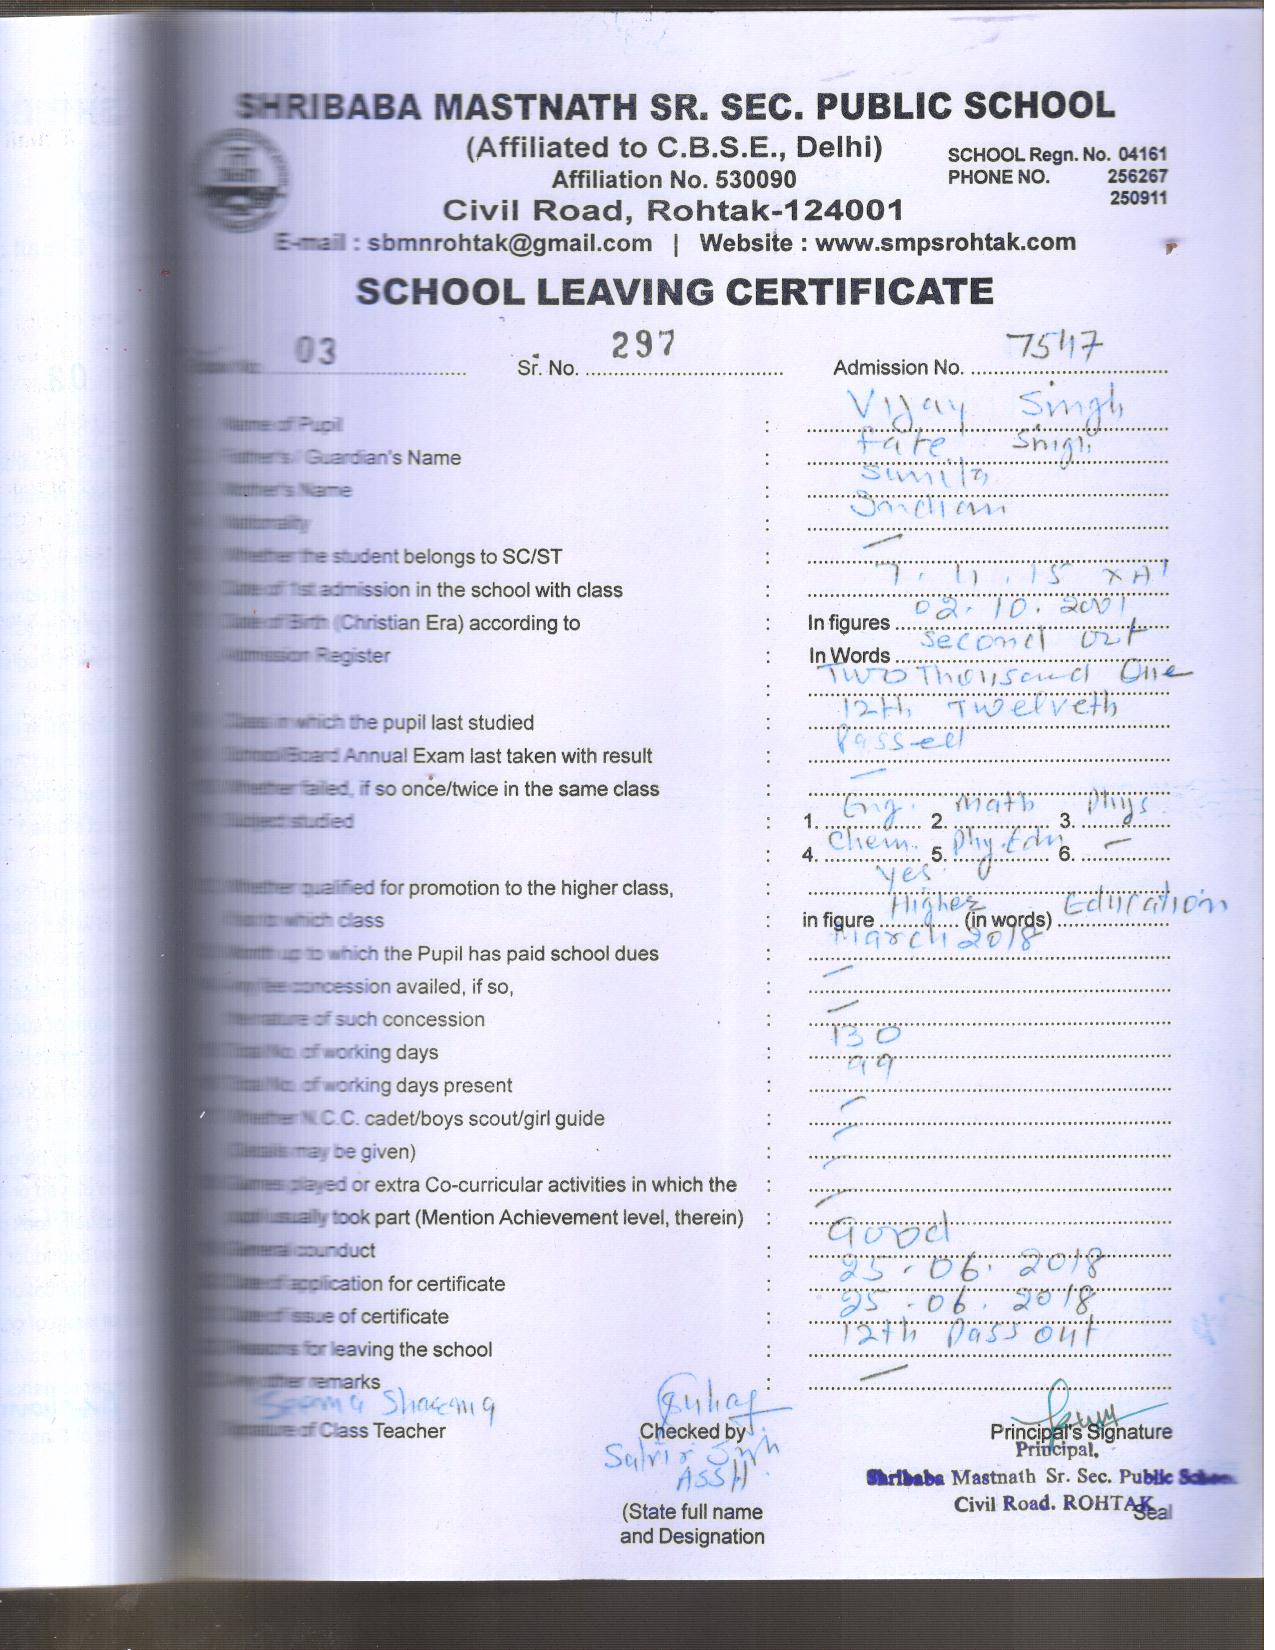 SHRIBABA MASTNATH SR. SEC. PUBLIC SCHOOL
(Affiliated to C.B.S.E., Delhi)
Affiliation No. 530090
SCHOOL Regn. No. 04161
PHONE NO. 256267
250911
Civil Road, Rohtak-124001
E-mail : sbmnrohtak@gmail.com | Website : www.smpsrohtak.com
SCHOOL LEAVING CERTIFICATE
03 Sr. No. 297 Admission No. 7547
Name of Pupil : Vijay Singh
Father's / Guardian's Name : Fate Singh
Mother's Name : Sunita
Nationality : Indian
Whether the student belongs to SC/ST : —
Date of 1st admission in the school with class : 7.11.15
Date of Birth (Christian Era) according to : In figures 02.10.2001
Admission Register : In Words Second Oct
: Two Thousand One
Class in which the pupil last studied : 12th Twelveth
School/Board Annual Exam last taken with result : Passed
Whether failed, if so once/twice in the same class : —
Subject studied : 1. Eng. 2. Math 3. Phys
: 4. Chem. 5. Phy.Edn 6. —
Whether qualified for promotion to the higher class, : Yes.
which class : in figure Higher (in words) Education
Month up to which the Pupil has paid school dues : March 2018
Any fee concession availed, if so, : —
the nature of such concession : —
Total No. of working days : 130
Total No. of working days present : 99
Whether N.C.C. cadet/boys scout/girl guide : —
(Details may be given) : —
Games played or extra Co-curricular activities in which the : —
pupil usually took part (Mention Achievement level, therein) : —
General counduct : Good
Date of application for certificate : 25.06.2018
Date of issue of certificate : 25.06.2018
Reasons for leaving the school : 12th Pass out
Any other remarks : —
Seema Sharma
Signature of Class Teacher Checked by Principal's Signature
Principal,
Shribaba Mastnath Sr. Sec. Public School
Civil Road. ROHTAK
Seal
(State full name
and Designation